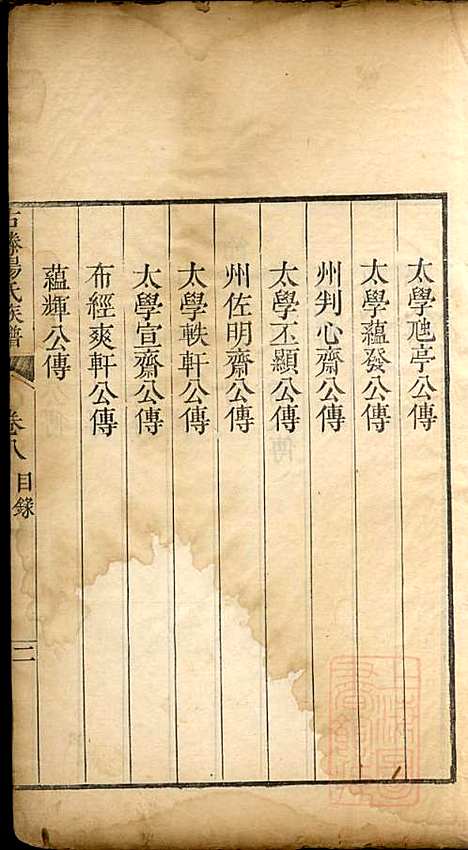 太學㐌亭公傳
太學蘊發公傳
州判心齋公傳
太學丕顯公傳
州佐明齋公傳
太學軼軒公傳
太學宣齋公傳
布經爽軒公傳
蘊輝公傳
氏族譜
卷八
目錄
二